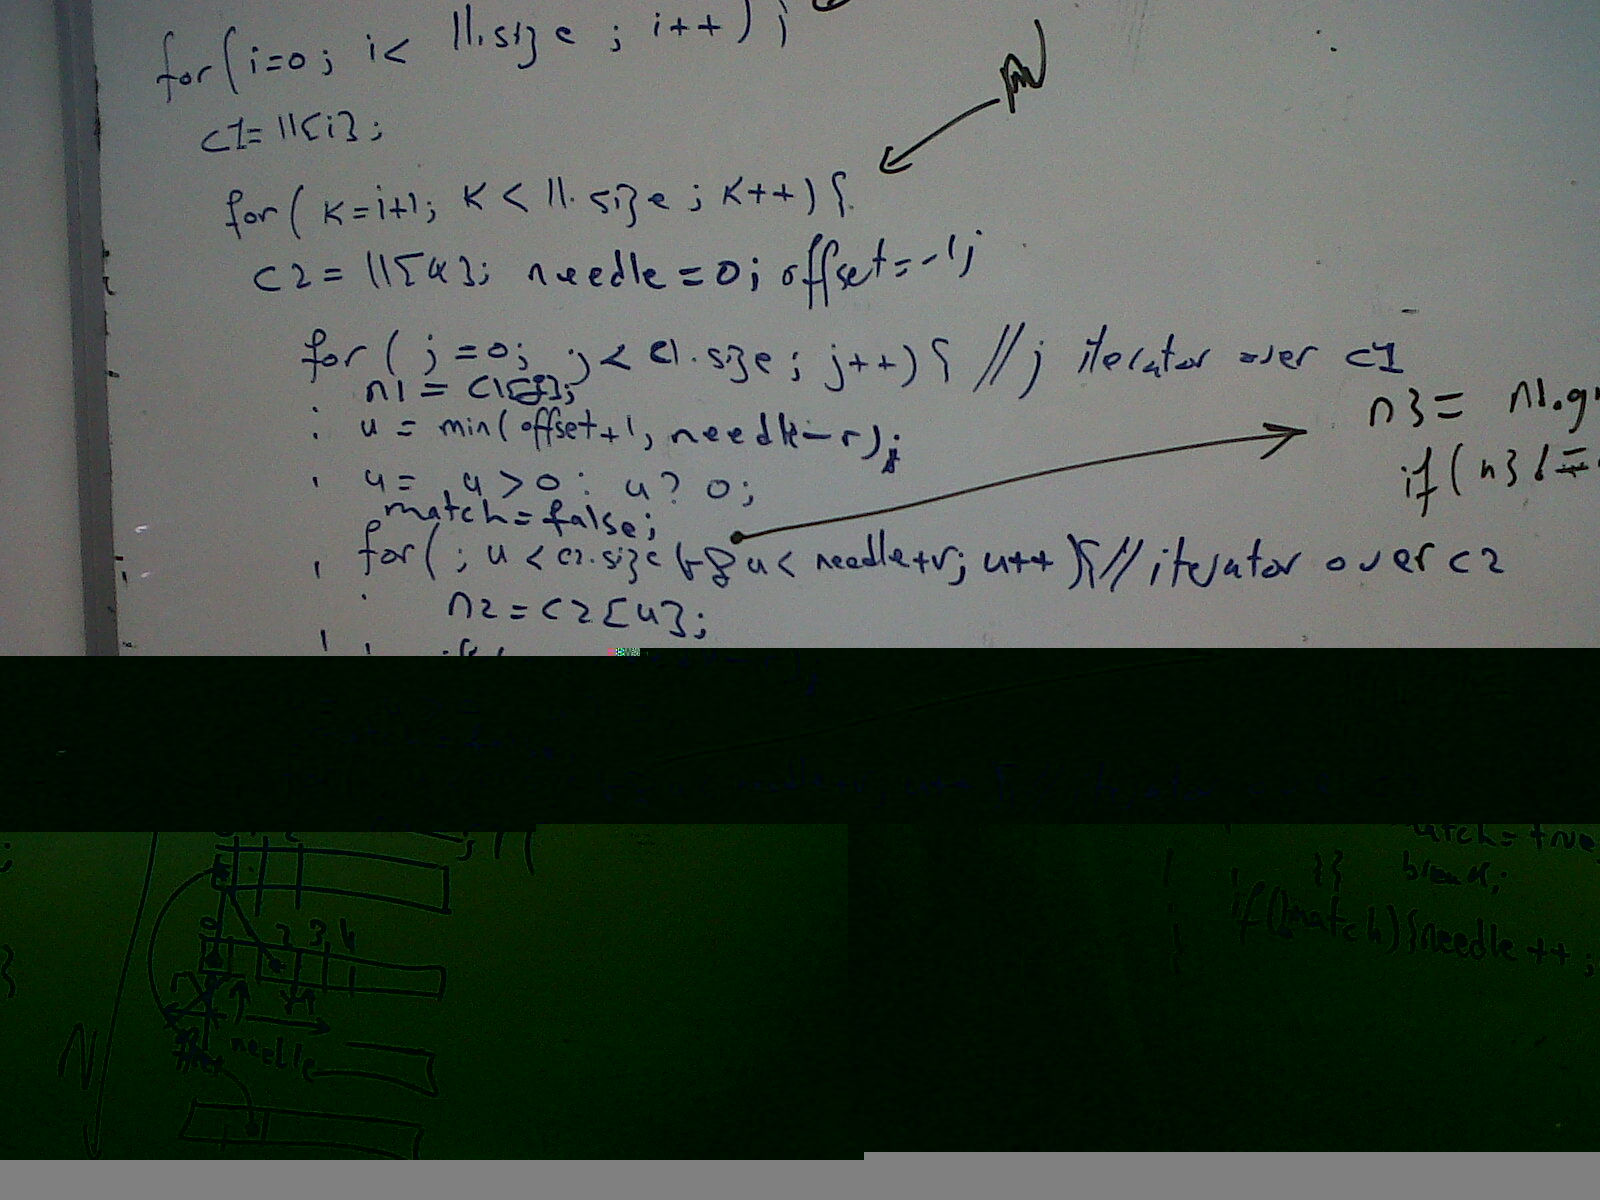 for(i=0; i< ll.size ; i++) ;
c1= ll[i];
for( k=i+1; k < ll.size ; k++) {
c2 = ll[u]; needle = 0; offset=-1;
for( j=0; j< c1.size ; j++) { // j iterator over c1
n1 = c1[j];
u = min( offset+1, needle-r);
u = u > 0 : u ? 0;
match=false;
for( ; u < c2.size && u < needle+r; u++ ){ // iterator over c2
n2 = c2[u];
n3 = n1.g
if( n3 !=
atch=true
}} break;
if(!match){needle ++ ;
0 2 3 4
needle